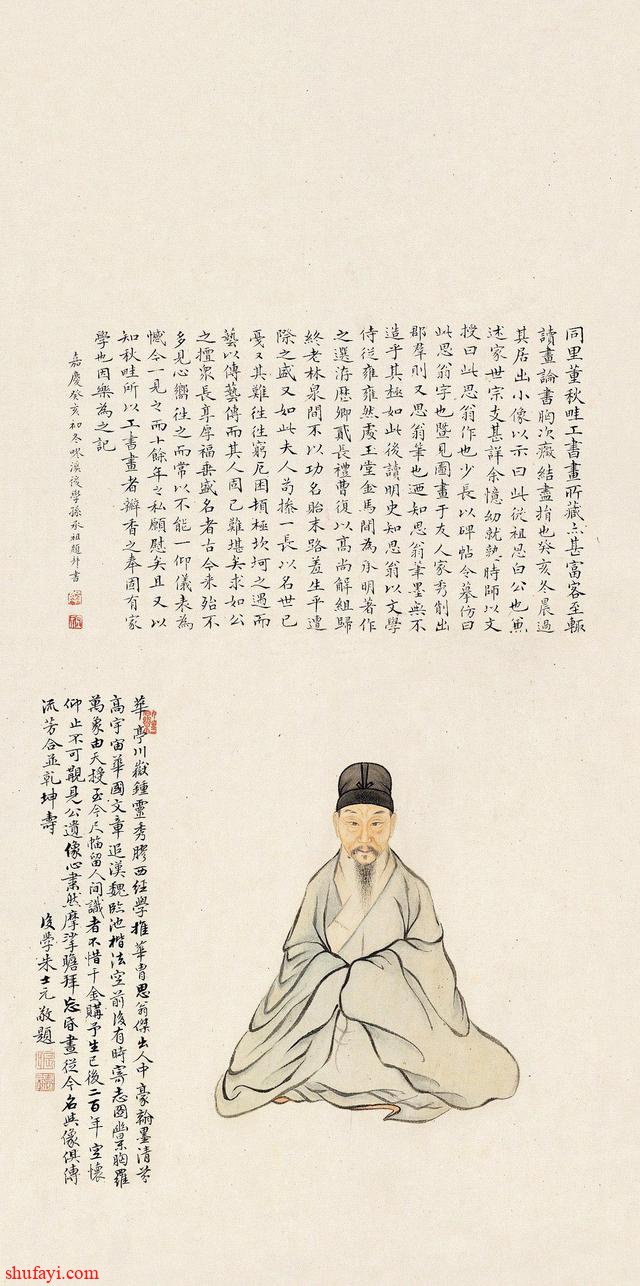 同里董秋畦工書畫所藏亦甚富客至輒
讀畫論書胸次癥結盡捐也癸亥冬晨過
其居出小像以示曰此從祖思白公也兼
述家世宗支甚詳余憶幼就執時師以文
授曰此思翁作也少長以碑帖令摹仿曰
此思翁字也暨見圖畫于友人家秀削出
郡羣則又思翁筆也迺知思翁筆墨無不
造乎其極如此後讀明史知思翁以文學
侍從雍雍然處玉堂金馬間為永明著作
之選洊歷卿貳長禮曹復以高尚解組歸
終老林泉間不以功名貽末路羞生平遭
際之盛又如此夫人苟搽一長以名世已
憂又其難往往窮厄困頓極坎坷之遇而
藝以傳藝傳而其人固已難堪矣求如公
之擅眾長享厚福垂盛名者古今来殆不
多見心嚮往之而常以不能一仰儀表為
憾今一見之而卅餘年之私願慰矣且又以
知秋畦所以工書畫者瓣香之奉固有家
學也因樂為之記
嘉慶癸亥初冬 溪後學孫承祖題并書
華亭川嶽鍾靈秀膠西經學推華胄思翁傑出人中豪翰墨清芬
高宇宙華國文章追漢魏臨池楷法空前後有時寄志圖 景胸羅
萬象由天授至今尺幅留人間識者不惜千金購予生已後二百年空懷
仰止不可觀見公遺像心肅然摩挲瞻拜忘昏晝從今名與像俱傳
流芳合並乾坤壽
後學朱士元敬題
shufayi.com